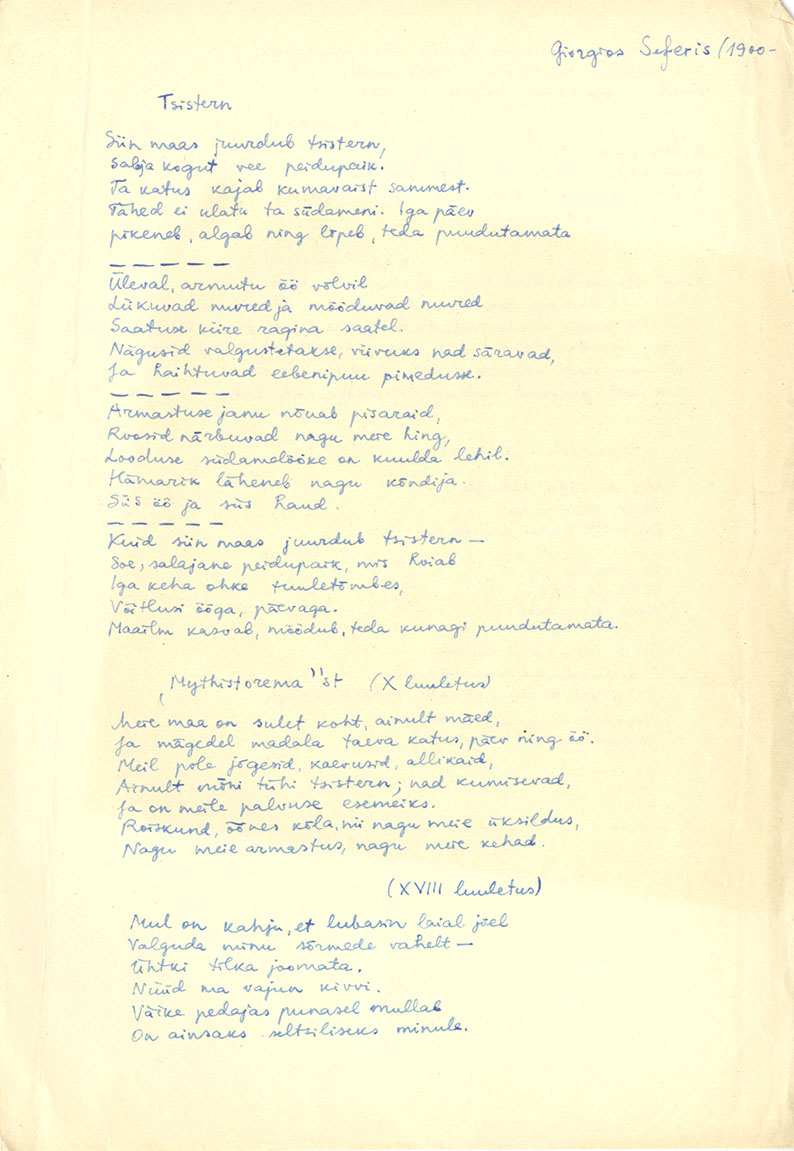 Giorgios Seferis (1900-
Tsistern
Siin maas juurdub tsistern,
Salaja kogut vee peidupaik.
Ta katus kajab kumavaist sammest.
Tähed ei ulatu ta südameni. Iga päev
pikeneb, algab ning lõpeb, teda puudutamata
— — — — —
Üleval, armutu öö võlvil
Liikuvad nured ja mööduvad nured
Saatuse kiire ragina saatel.
Nägusid valgustetakse, viivuks nad säravad,
Ja haihtuvad eebenipuu pimedusse.
— — — — —
Armastuse janu nõuab pisaraid,
Roosid närbuvad nagu meie hing,
Looduse südamelööke on kuulda lehil.
Hämarik läheneb nagu kõndija.
Siis öö ja siis haud.
— — — — —
Kuid siin maas juurdub tsistern —
Soe, salajane peidupaik, mis hoiab
Iga keha ohke tuuletõmbes,
Võitlusi ööga, päevaga.
Maailm kasvab, möödub, teda kunagi puudutamata.
„Mythistorema"'st (X luuletus)
Meie maa on sulet koht, ainult mäed,
Ja mägedel madala taeva katus, päev ning öö.
Meil pole jõgesid, kaevusid, allikaid,
Ainult mõni tühi tsistern; nad kumisevad,
Ja on meile palvuse esemeiks.
Roiskund, õõnes kõla, nii nagu meie üksildus,
Nagu meie armastus, nagu meie kehad.
(XVIII luuletus)
Mul on kahju, et lubasin laial jõel
Valguda minu sõrmede vahelt —
Ühtki tilka joomata.
Nüüd ma vajun kivvi.
Väike pedajas punasel mullal
On ainsaks seltsiliseks minule.